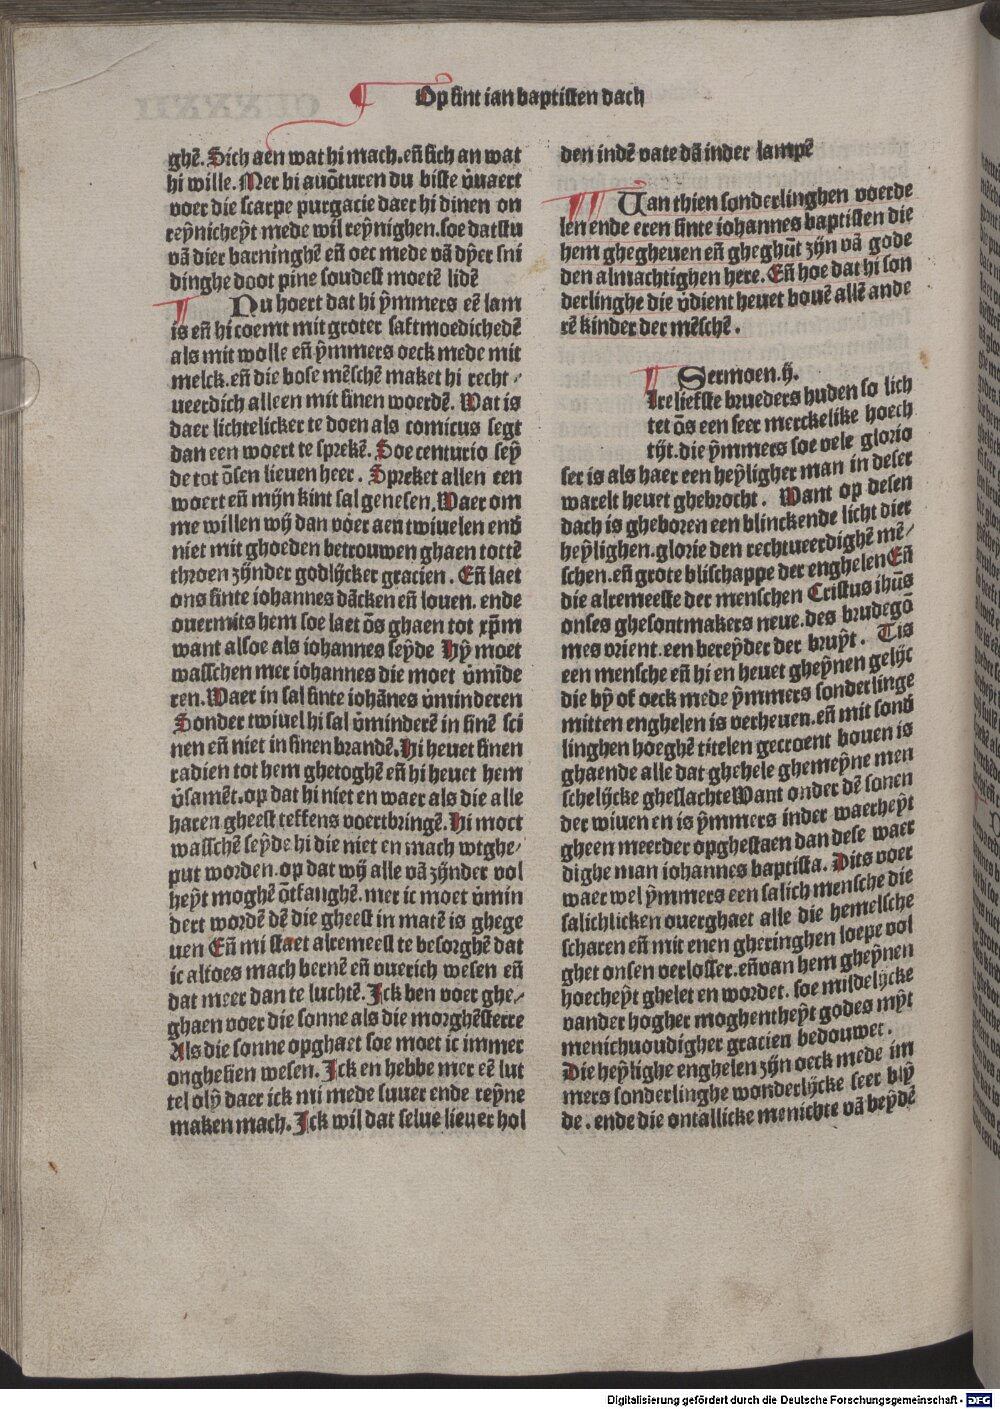 Op sint ian baptisten dach
ghē. Sich aen wat hi mach. en̄ sich an wat
hi wille. Mer bi auōturen du biste v̓uaert
voer die scarpe purgacie daer hi dinen on
reÿnicheÿt mede wil reÿnighen. soe datstu
vā dier barninghē en̄ oec mede vā dÿer sni
dinghe doot pine soudest moetē lidē
Nu hoert dat hi ÿmmers eē lam
is en̄ hi coemt mit groter saftmoedichedē
als mit wolle en̄ ÿmmers oeck mede mit
melck. en̄ die bose mēschē maket hi recht⸗
ueerdich alleen mit sinen woerdē. Wat is
daer lichtelicker te doen als comicus segt
dan een woert te sprekē. Soe centurio seÿ
de tot ōsen lieuen heer. Spreket allen een
woert en̄ mÿn kint sal genesen. Waer om
me willen wÿ dan voer aen twiuelen end̓
niet mit ghoeden betrouwen ghaen tottē
throen zÿnder godlÿcker gracien. En̄ laet
ons sinte iohannes dācken en̄ louen. ende
ouermits hem soe laet ōs ghaen tot xp̄m
want alsoe als iohannes seÿde Hÿ moet
wasschen mer iohannes die moet v̓mīde
ren. Waer in sal sinte iohānes v̓minderen
Sonder twiuel hi sal v̓minderē in sinē sci
nen en̄ niet in sinen brandē. Hi heuet sinen
radien tot hem ghetoghē en̄ hi heuet hem
v̓samēt. op dat hi niet en waer als die alle
haren gheest teffens voertbringē. Hi moet
wasschē seÿde hi die niet en mach wtghe⸗
put worden. op dat wÿ alle vā zÿnder vol
heÿt moghē ōtfanghē. mer ic moet v̓min
dert wordē dē die gheest in matē is ghege
uen En̄ mi staet alremeest te besorghē dat
ic altoes mach bernē en̄ vuerich wesen en̄
dat meer dan te luchtē. Ick ben voer ghe⸗
ghaen voer die sonne als die morghēsterre
Als die sonne opghaet soe moet ic immer
onghesien wesen. Ick en hebbe mer eē lut
tel olÿ daer ick mi mede suuer ende reÿne
maken mach. Ick wil dat selue lieuer hol
den indē vate dā inder lampē
Uan thien sonderlinghen voerde
len ende eren sinte iohannes baptisten die
hem ghegheuen en̄ ghegh̄ut zÿn vā gode
den almachtighen here. En̄ hoe dat hi son
derlinghe die v̓dient heuet bouē allē ande
rē kinder der mēschē.
Sermoen. ÿ.
Ire liefste brueders huden so lich
tet ōs een seer merckelike hoech
tÿt. die ÿmmers soe vele glorio
ser is als haer een heÿligher man in deser
warelt heuet ghebrocht. Want op desen
dach is gheboren een blinckende licht dier
heÿlighen. glorie den rechtueerdighē mē⸗
schen. en̄ grote blischappe der enghelen En̄
die alremeeste der menschen Cristus ihūs
onses ghesontmakers neue. des brudegō
mes vrient. een bereÿder der bruÿt. Tis
een mensche en̄ hi en heuet gheÿnen gelÿc
die bÿ of oeck mede ÿmmers sonderlinge
mitten enghelen is verheuen. en̄ mit sond̓
linghen hoeghē titelen gecroent bouen is
ghaende alle dat ghehele ghemeÿne men
schelÿcke gheslachte Want onder dē sonen
der wiuen en is ÿmmers inder waerheÿt
gheen meerder opghestaen dan dese waer
dighe man iohannes baptista. Dits voer
waer wel ÿmmers een salich mensche die
salichlicken ouerghaet alle die hemelsche
scharen en̄ mit enen gheringhen loepe vol
ghet onsen verlosser. en̄ van hem gheÿnen
hoecheÿt ghelet en wordet. soe mildelÿcke
vander hogher moghentheÿt godes mÿt
menichuoudigher gracien bedouwet.
Die heÿlighe enghelen zÿn oeck mede im
mers sonderlinghe wonderlÿcke seer blÿ
de. ende die ontallicke menichte vā beÿdē
Digitalisierung gefördert durch die Deutsche Forschungsgemeinschaft - DFG